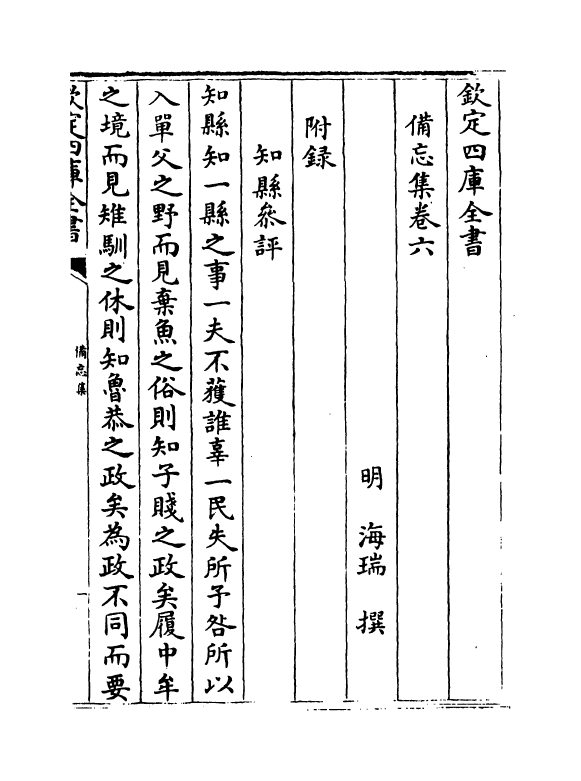 欽定四庫全書
備忘集卷六
明 海瑞 撰
附録
知縣叅評
知縣知一縣之事一夫不獲誰辜一民失所予咎所以
入單父之野而見棄魚之俗則知子賤之政矣履中牟
之境而見雉馴之休則知魯恭之政矣為政不同而要
欽定四庫全書
備忘集
一